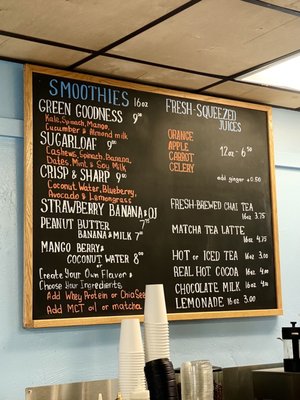 SMOOTHIES 16oz
GREEN GOODNESS 9⁰⁰
Kale, Spinach, Mango,
Cucumber & Almond milk
SUGARLOAF 9⁰⁰
Cashews, Spinach, Banana,
Dates, Mint & Soy Milk
CRISP & SHARP 9⁰⁰
Coconut Water, Blueberry,
Avocado & Lemongrass
STRAWBERRY BANANA & OJ
PEANUT BUTTER
BANANA & MILK 7⁷⁵
MANGO BERRY &
COCONUT WATER 8⁰⁰
or
Create Your Own Flavor &
Choose Your Ingredients
Add Whey Protein or Chia Seeds
Add MCT oil or matcha
FRESH-SQUEEZED
JUICES
ORANGE
APPLE
CARROT
CELERY
12oz 6.⁵⁰
add ginger +0.50
FRESH-BREWED CHAI TEA
16oz 3.75
MATCHA TEA LATTE
16oz 4.75
HOT or ICED TEA 16oz 3.00
REAL HOT COCOA 16oz 4.00
CHOCOLATE MILK 16oz 4.00
LEMONADE 16oz 3.00